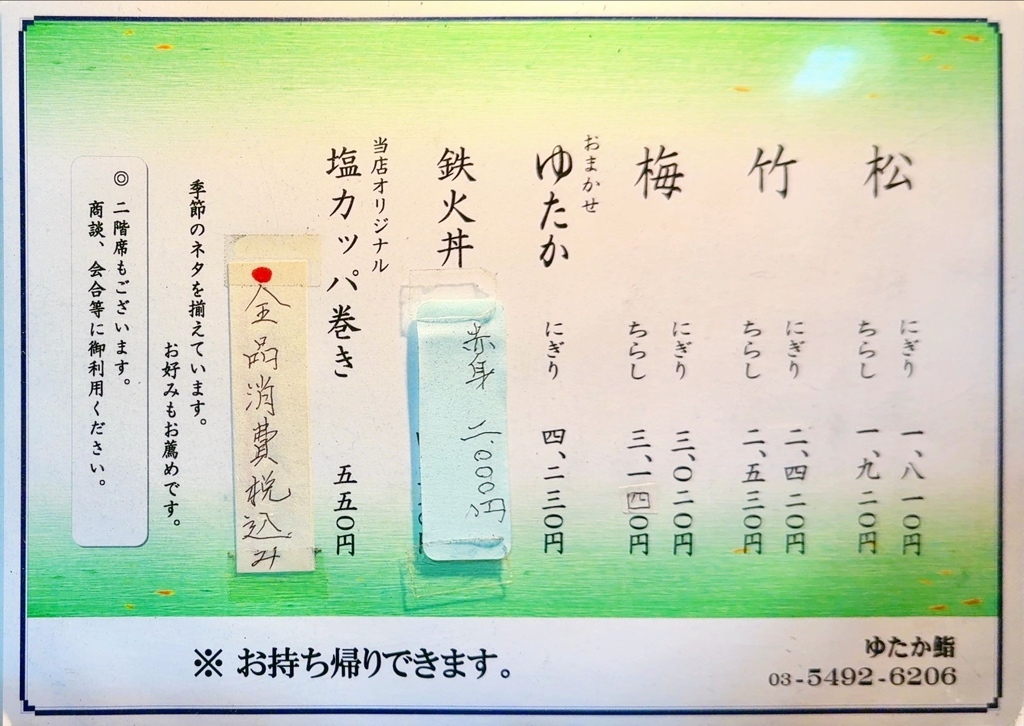 松
にぎり 一、八一〇円
ちらし 一、九二〇円
竹
にぎり 二、四二〇円
ちらし 二、五三〇円
梅
にぎり 三、〇二〇円
ちらし 三、一四〇円
おまかせ
ゆたか にぎり 四、二三〇円
鉄火丼
赤身 二、000円
当店オリジナル
塩カッパ巻き 五五〇円
全品消費税込み
季節のネタを揃えています。
お好みもお薦めです。
◎ 二階席もございます。
商談、会合等に御利用ください。
※ お持ち帰りできます。
ゆたか鮨
03-5492-6206